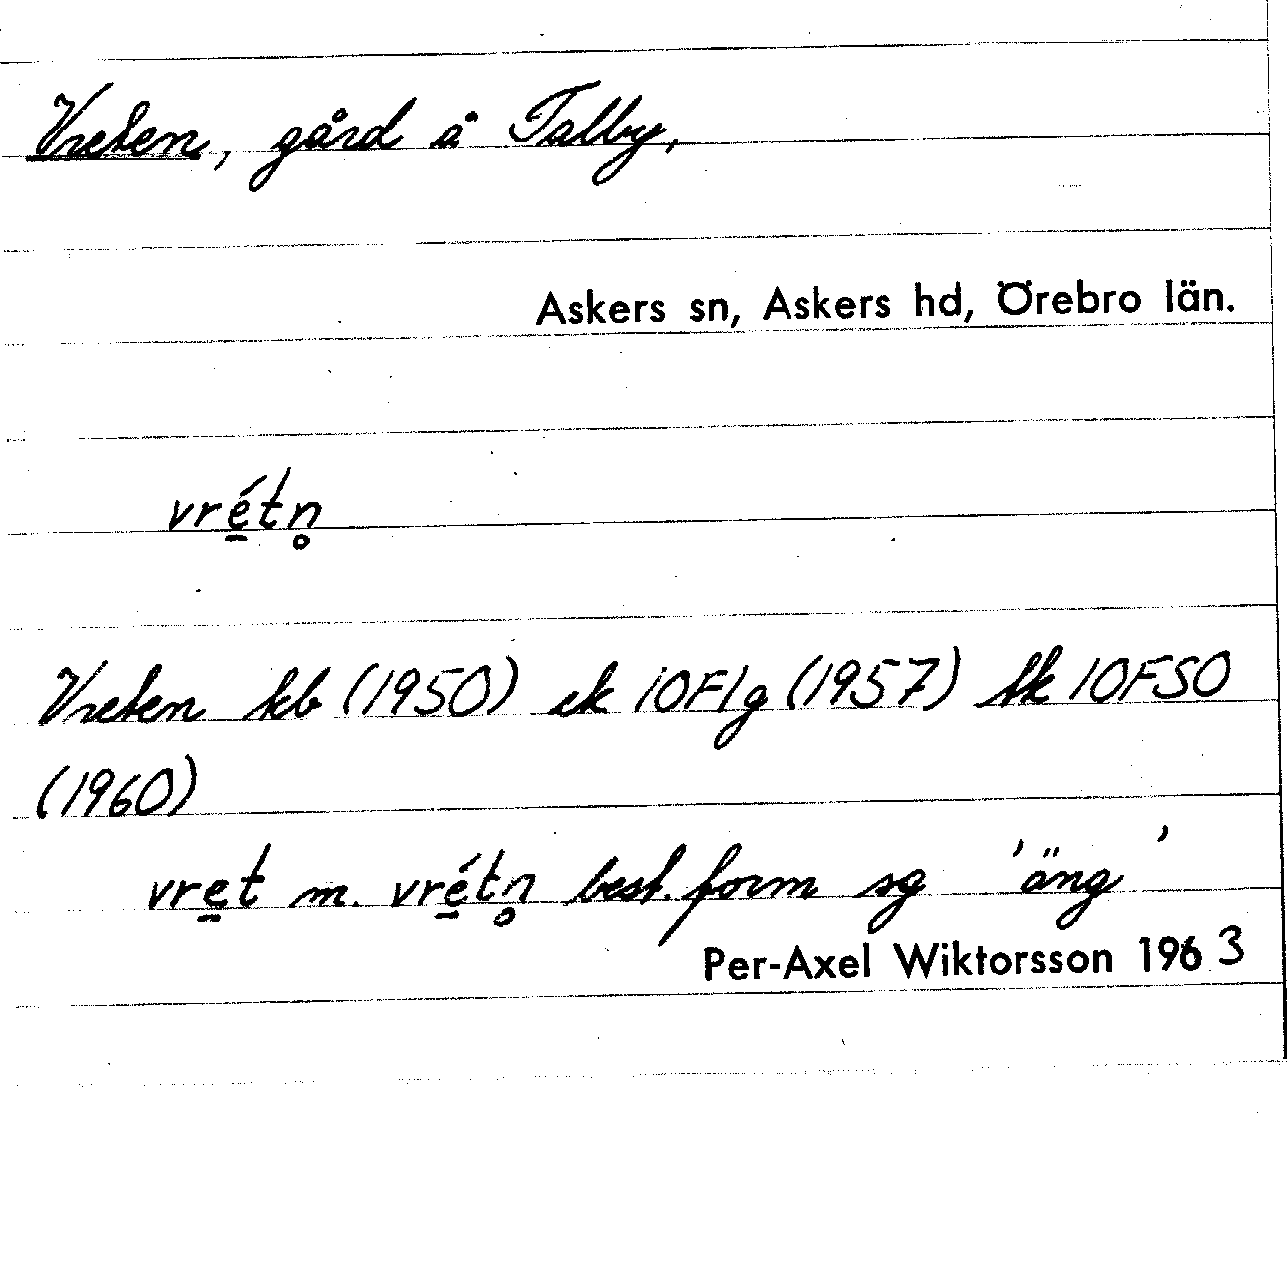 Vreten, gård å Talby,
Askers sn, Askers hd, Örebro län.
vré̠tn̥
Vreten kb (1950) ek 10F1g (1957) tk 10FSO
(1960)
vre̠t m. vré̠tn̥ best. form sg 'äng'
Per-Axel Wiktorsson 1963